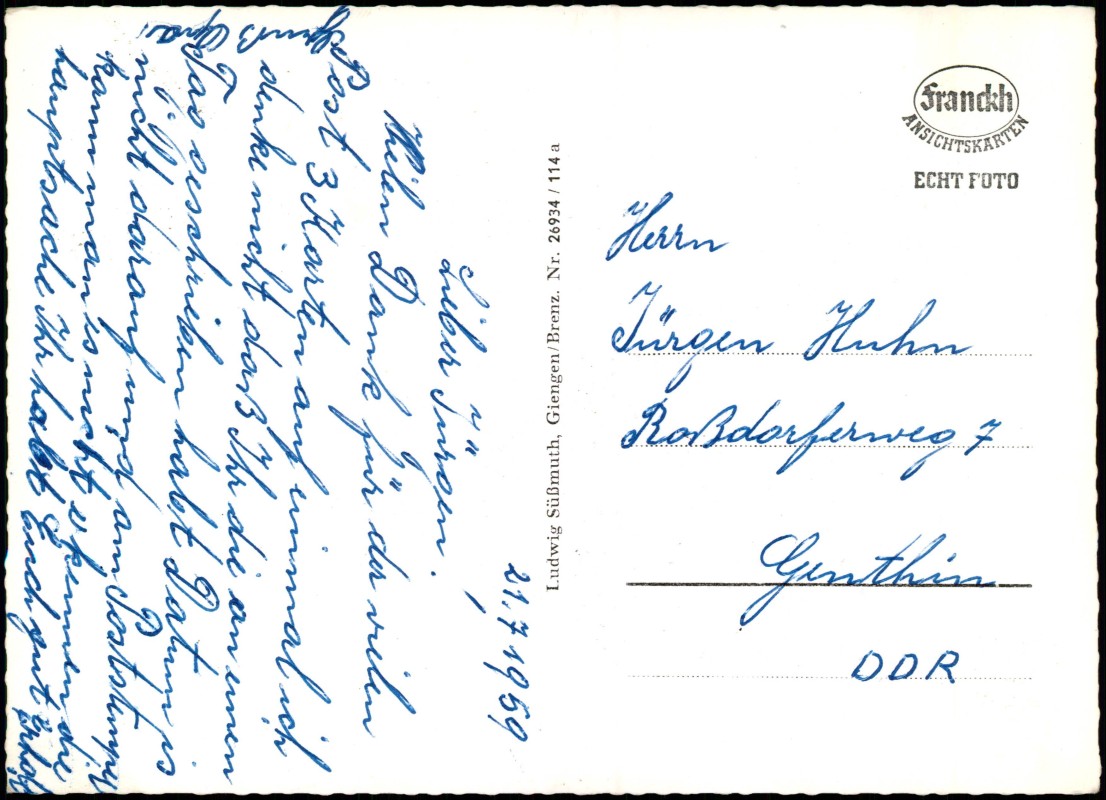 21.7.1959
Lieber Jürgen!
Vielen Dank für der vielen
Post 3 Karten auf einmal ich
denke nicht daß Ihr die an einen
Tag geschrieben habt Datum is
nicht darauf und am Poststempel
kann man es nicht erkennen die
hauptsache Ihr habt Euch gut erholt
Gruß Opa
Franckh
ANSICHTSKARTEN
ECHT FOTO
Ludwig Süßmuth, Giengen/Brenz. Nr. 26934/114 a
Herrn
Jürgen Huhn
Roßdorferweg 7
Genthin
DDR